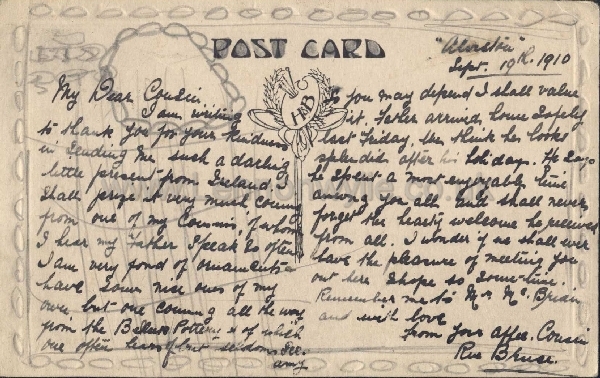 POST CARD
"Alverstoin"
Sept. 19th, 1910
My Dear Cousin,
I am writing
to thank you for your kindness
in sending me such a darling
little present from Ireland. I
shall prize it very much coming
from one of my Cousins, of whom
I hear my Father speak so often
I am very fond of ornaments &
have some nice ones of my
own, but one coming all the way
from the Belleek Pottery, is of which
one often hears of but seldom see
any
So you may depend I shall value
it. Father arrived home safely
last Friday, we think he looks
splendid after his holiday. He says
he spent a most enjoyable time
among you all and shall never
forget the hearty welcome he received
from all. I wonder if we shall ever
have the pleasure of meeting you
out here I hope so some-time.
Remember me to Mr Mc Brian
and with love
from your affec. Cousin
Rue Bruse.
H B